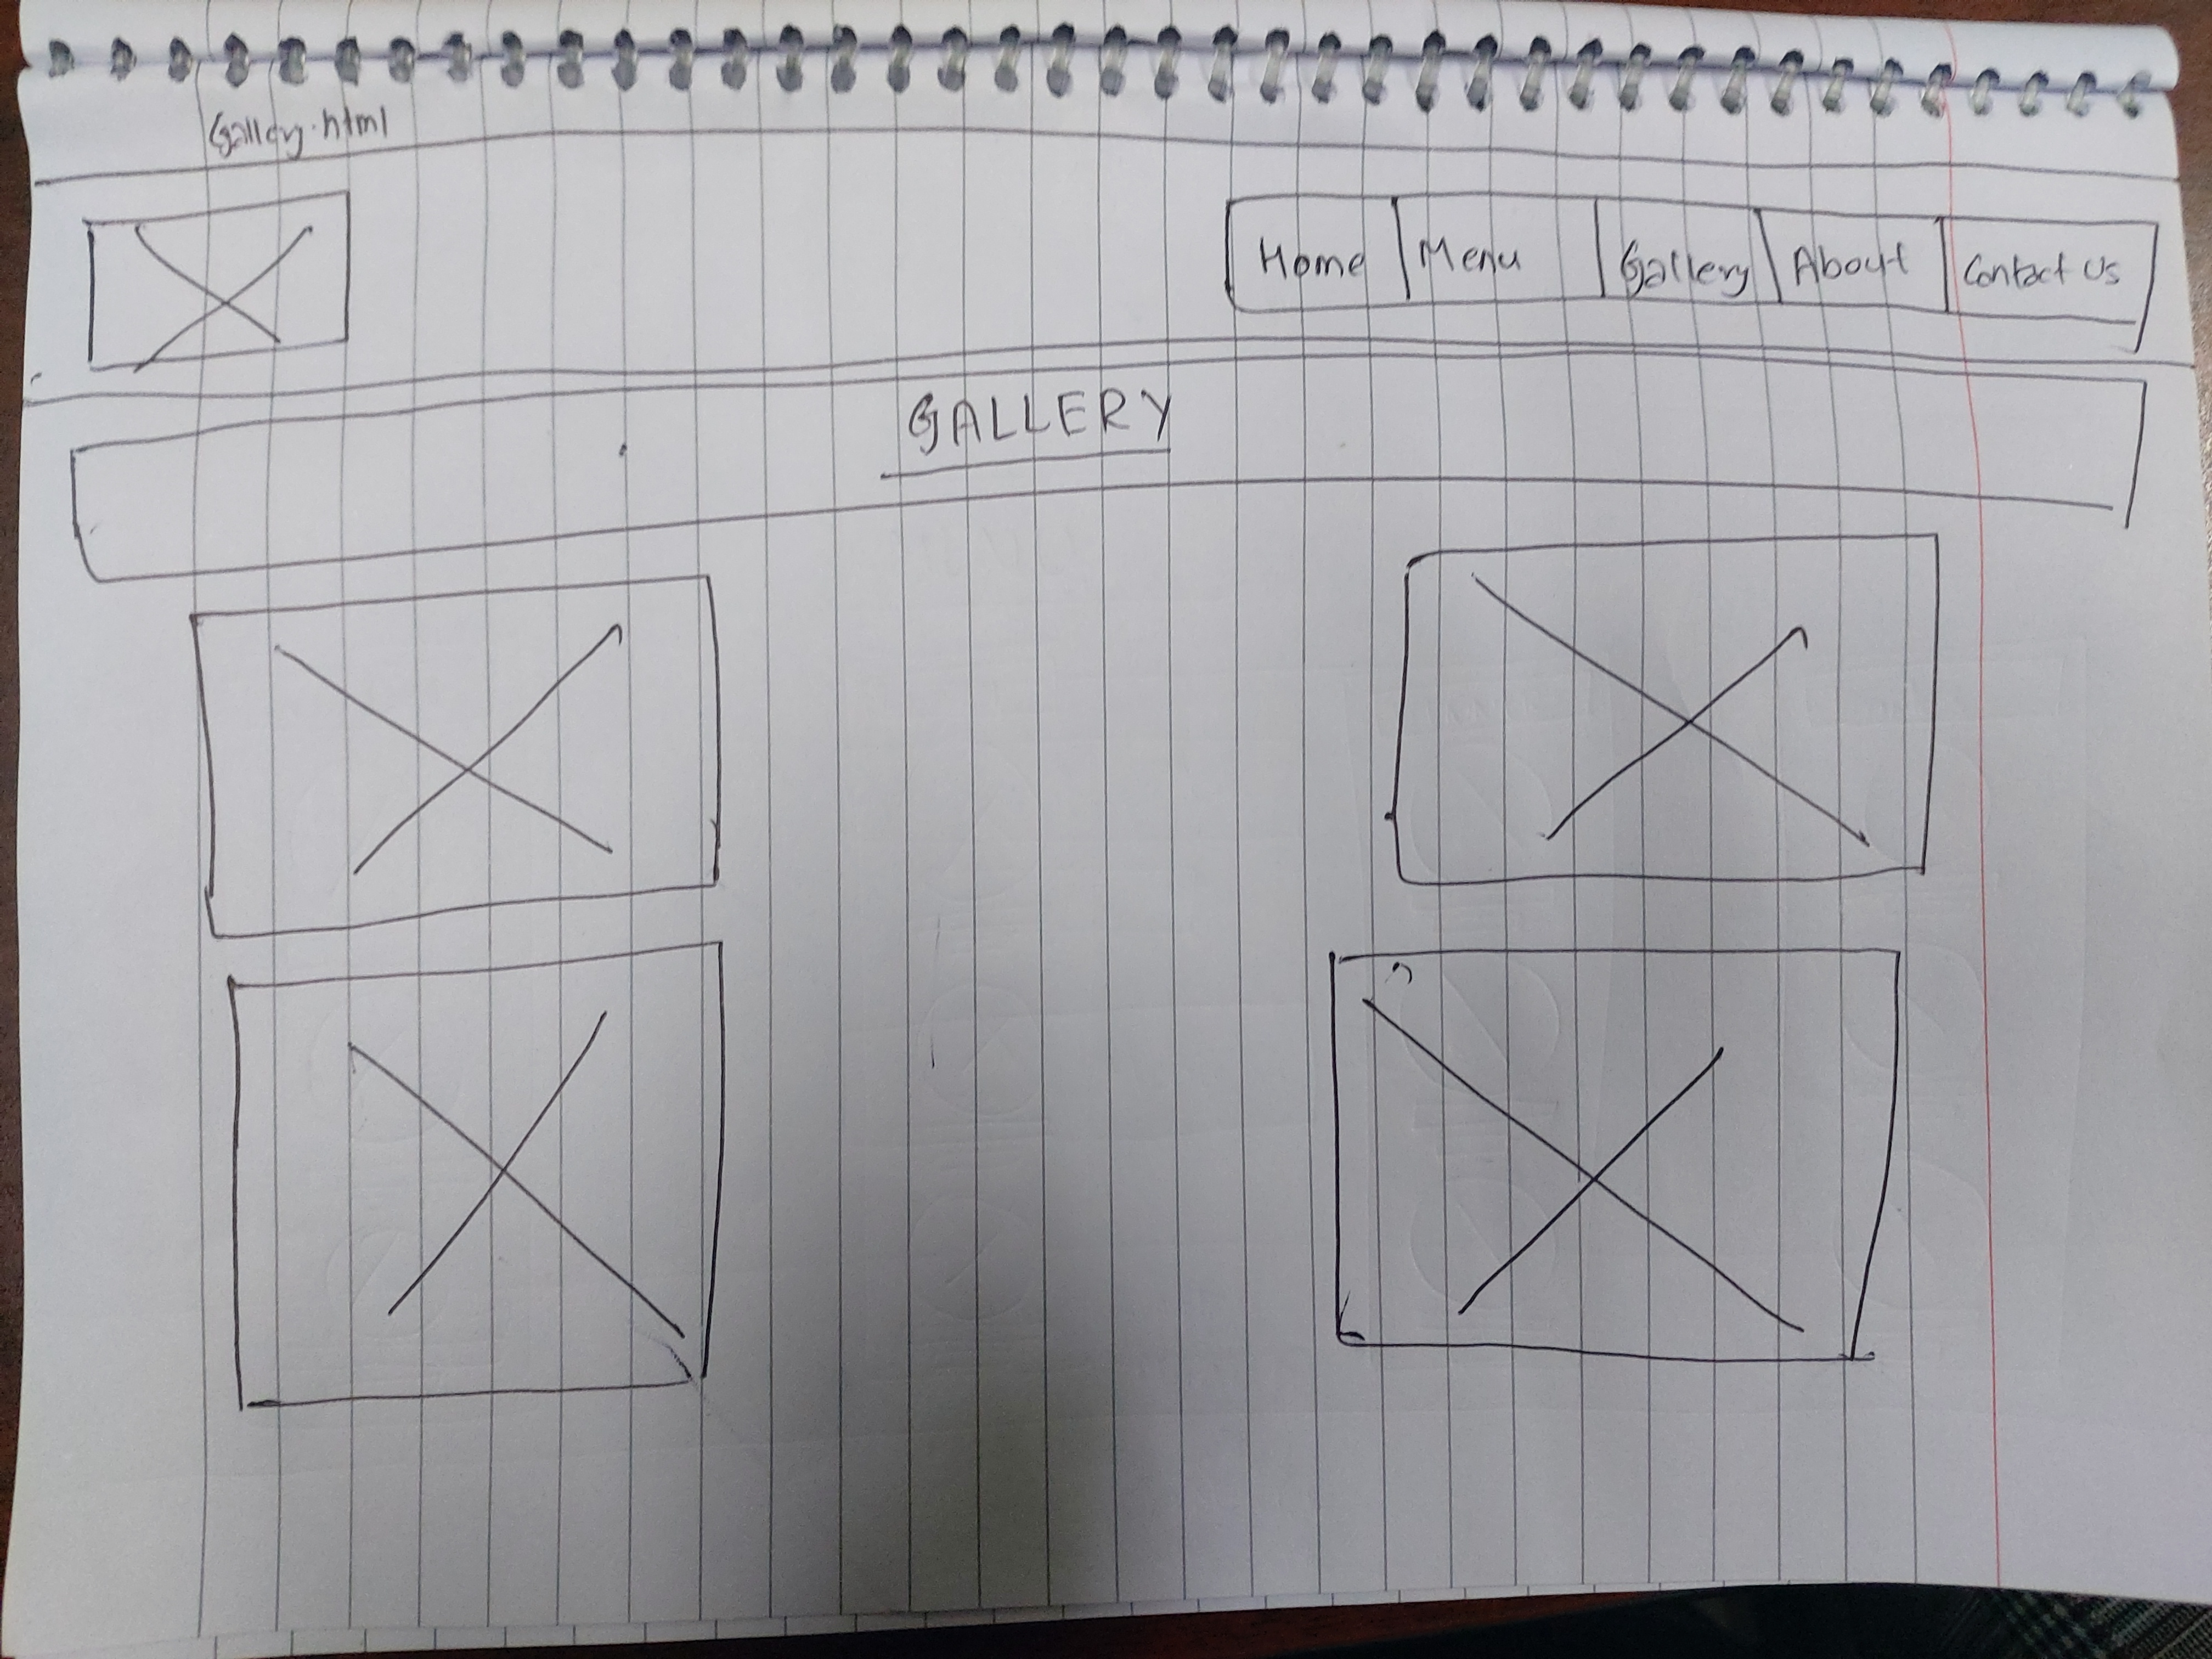 Gallery.html
Home Menu Gallery About Contact Us
GALLERY